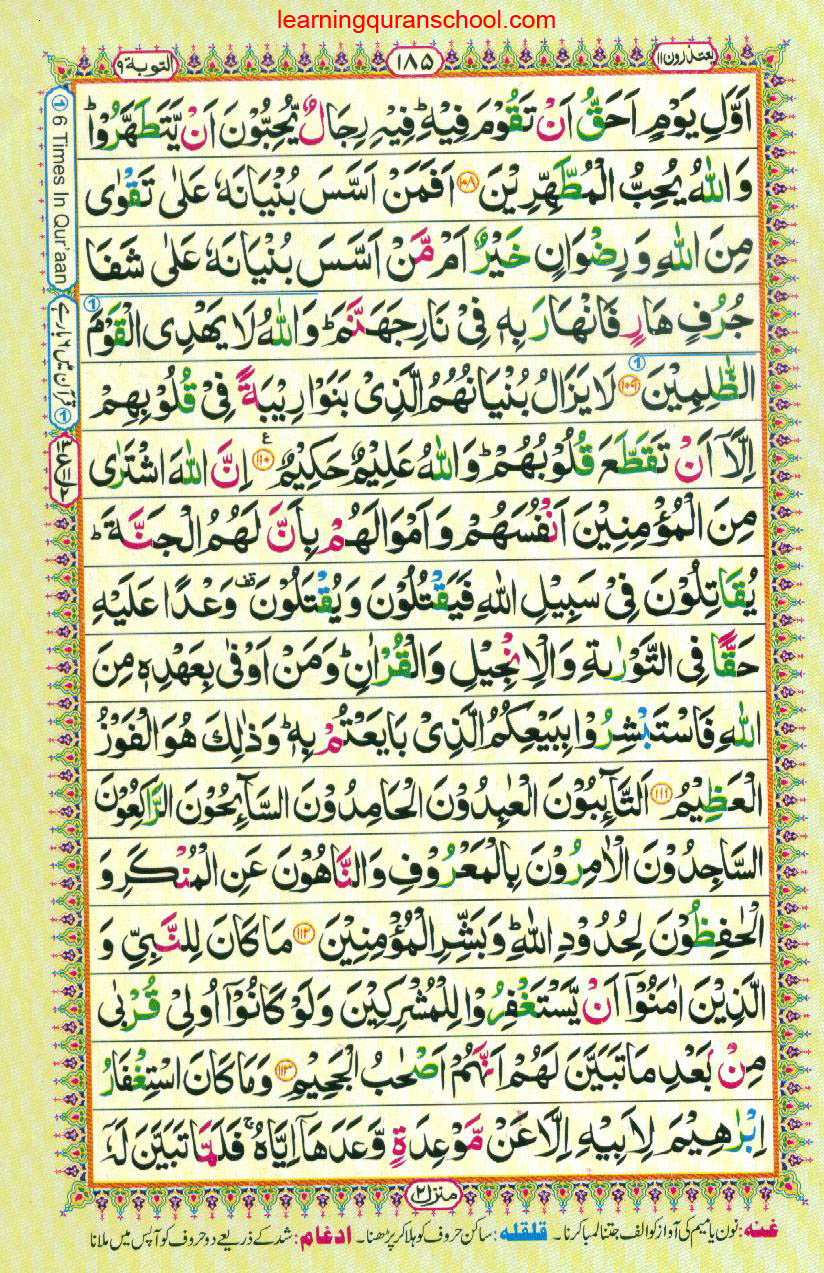 learningquranschool.com
التوبة ٩
١٨٥
یعتذرون ۱۱
اَوَّلِ یَوْمٍ اَحَقُّ اَنْ تَقُوْمَ فِیْهِ ؕ فِیْهِ رِجَالٌ یُّحِبُّوْنَ اَنْ یَّتَطَهَّرُوْا ؕ
وَ اللّٰهُ یُحِبُّ الْمُطَّهِّرِیْنَ ۝۱۰۸ اَفَمَنْ اَسَّسَ بُنْیَانَهٗ عَلٰی تَقْوٰی
مِنَ اللّٰهِ وَ رِضْوَانٍ خَیْرٌ اَمْ مَّنْ اَسَّسَ بُنْیَانَهٗ عَلٰی شَفَا
جُرُفٍ هَارٍ فَانْهَارَ بِهٖ فِیْ نَارِ جَهَنَّمَ ؕ وَ اللّٰهُ لَا یَهْدِی الْقَوْمَ
الظّٰلِمِیْنَ ۝۱۰۹ لَا یَزَالُ بُنْیَانُهُمُ الَّذِیْ بَنَوْا رِیْبَةً فِیْ قُلُوْبِهِمْ
اِلَّاۤ اَنْ تَقَطَّعَ قُلُوْبُهُمْ ؕ وَ اللّٰهُ عَلِیْمٌ حَكِیْمٌ ۝۱۱۰ اِنَّ اللّٰهَ اشْتَرٰی
مِنَ الْمُؤْمِنِیْنَ اَنْفُسَهُمْ وَ اَمْوَالَهُمْ بِاَنَّ لَهُمُ الْجَنَّةَ ؕ
یُقَاتِلُوْنَ فِیْ سَبِیْلِ اللّٰهِ فَیَقْتُلُوْنَ وَ یُقْتَلُوْنَ ۫ وَعْدًا عَلَیْهِ
حَقًّا فِی التَّوْرٰىةِ وَ الْاِنْجِیْلِ وَ الْقُرْاٰنِ ؕ وَ مَنْ اَوْفٰی بِعَهْدِهٖ مِنَ
اللّٰهِ فَاسْتَبْشِرُوْا بِبَیْعِكُمُ الَّذِیْ بَایَعْتُمْ بِهٖ ؕ وَ ذٰلِكَ هُوَ الْفَوْزُ
الْعَظِیْمُ ۝۱۱۱ اَلتَّآىِٕبُوْنَ الْعٰبِدُوْنَ الْحَامِدُوْنَ السَّآىِٕحُوْنَ الرّٰكِعُوْنَ
السَّاجِدُوْنَ الْاٰمِرُوْنَ بِالْمَعْرُوْفِ وَ النَّاهُوْنَ عَنِ الْمُنْكَرِ وَ
الْحٰفِظُوْنَ لِحُدُوْدِ اللّٰهِ ؕ وَ بَشِّرِ الْمُؤْمِنِیْنَ ۝۱۱۲ مَا كَانَ لِلنَّبِیِّ وَ
الَّذِیْنَ اٰمَنُوْۤا اَنْ یَّسْتَغْفِرُوْا لِلْمُشْرِكِیْنَ وَ لَوْ كَانُوْۤا اُولِیْ قُرْبٰی
مِنْۢ بَعْدِ مَا تَبَیَّنَ لَهُمْ اَنَّهُمْ اَصْحٰبُ الْجَحِیْمِ ۝۱۱۳ وَ مَا كَانَ اسْتِغْفَارُ
اِبْرٰهِیْمَ لِاَبِیْهِ اِلَّا عَنْ مَّوْعِدَةٍ وَّعَدَهَاۤ اِیَّاهُ ۚ فَلَمَّا تَبَیَّنَ لَهٗۤ
① 6 Times In Qur'aan
① قرآن میں ۶ بار ہے
منزل ۲
غنه: نون یا میم کی آواز کو الف جتنا لمبا کرنا۔ قلقله: ساکن حروف کو ہلا کر پڑھنا۔ ادغام: شد کے ذریعے دو حروف کو آپس میں ملانا